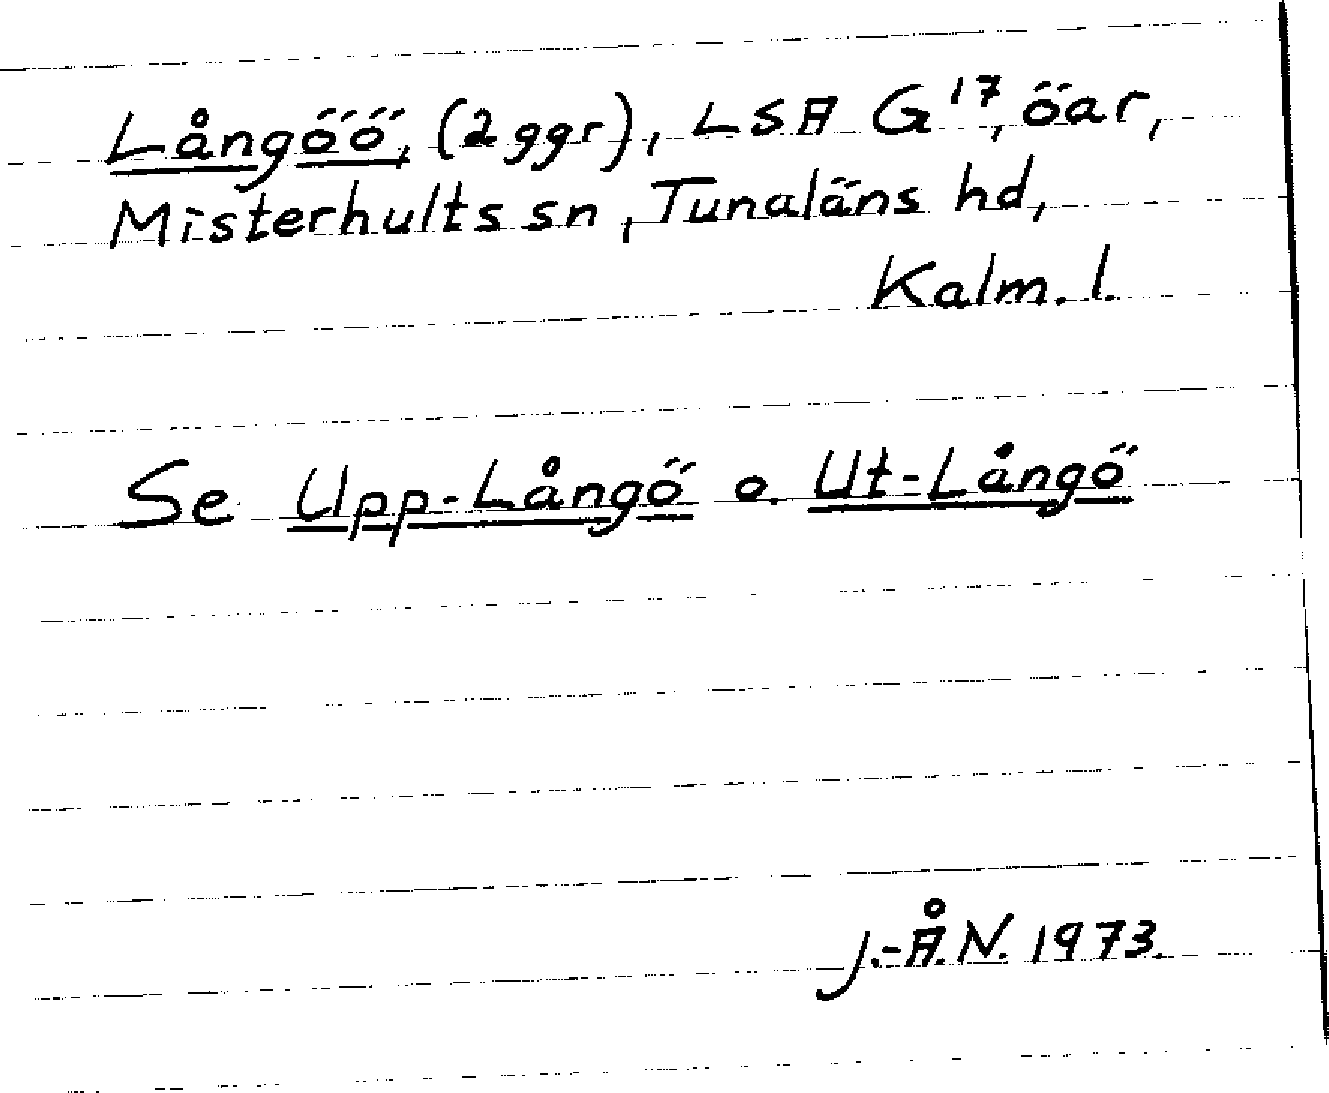 Långöö, (2 ggr), LSA G17, öar,
Misterhults sn, Tunaläns hd,
Kalm. l.
Se Upp-Långö o. Ut-Långö
J.-Å.N. 1973.